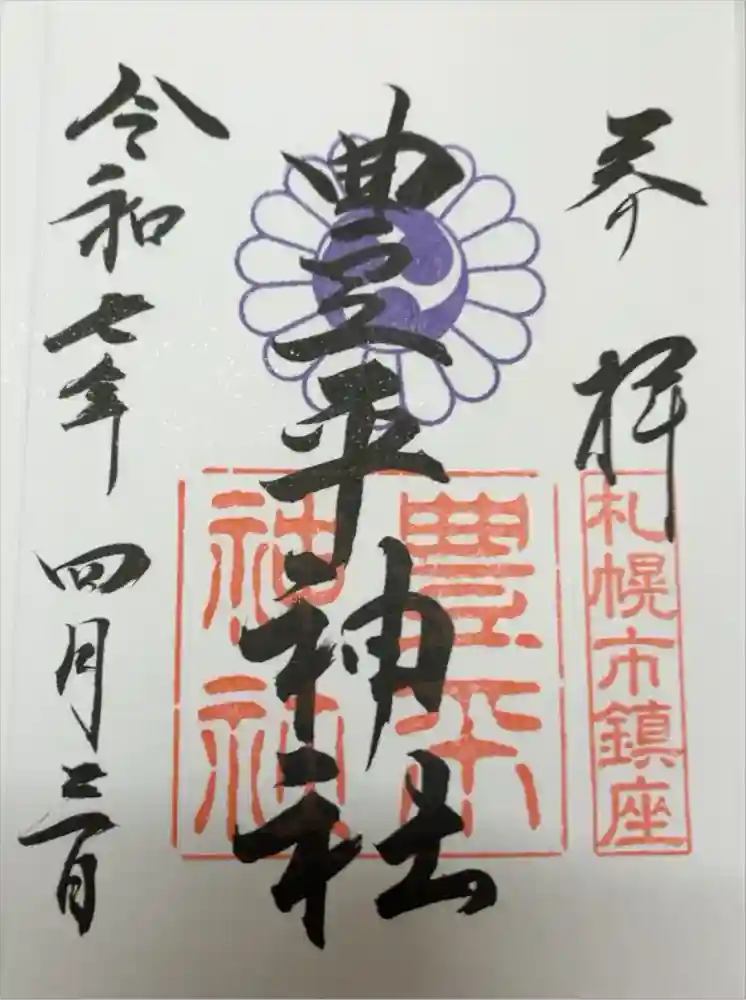 参拝
札幌市鎮座
豊平神社
豊平神社
令和七年四月三日